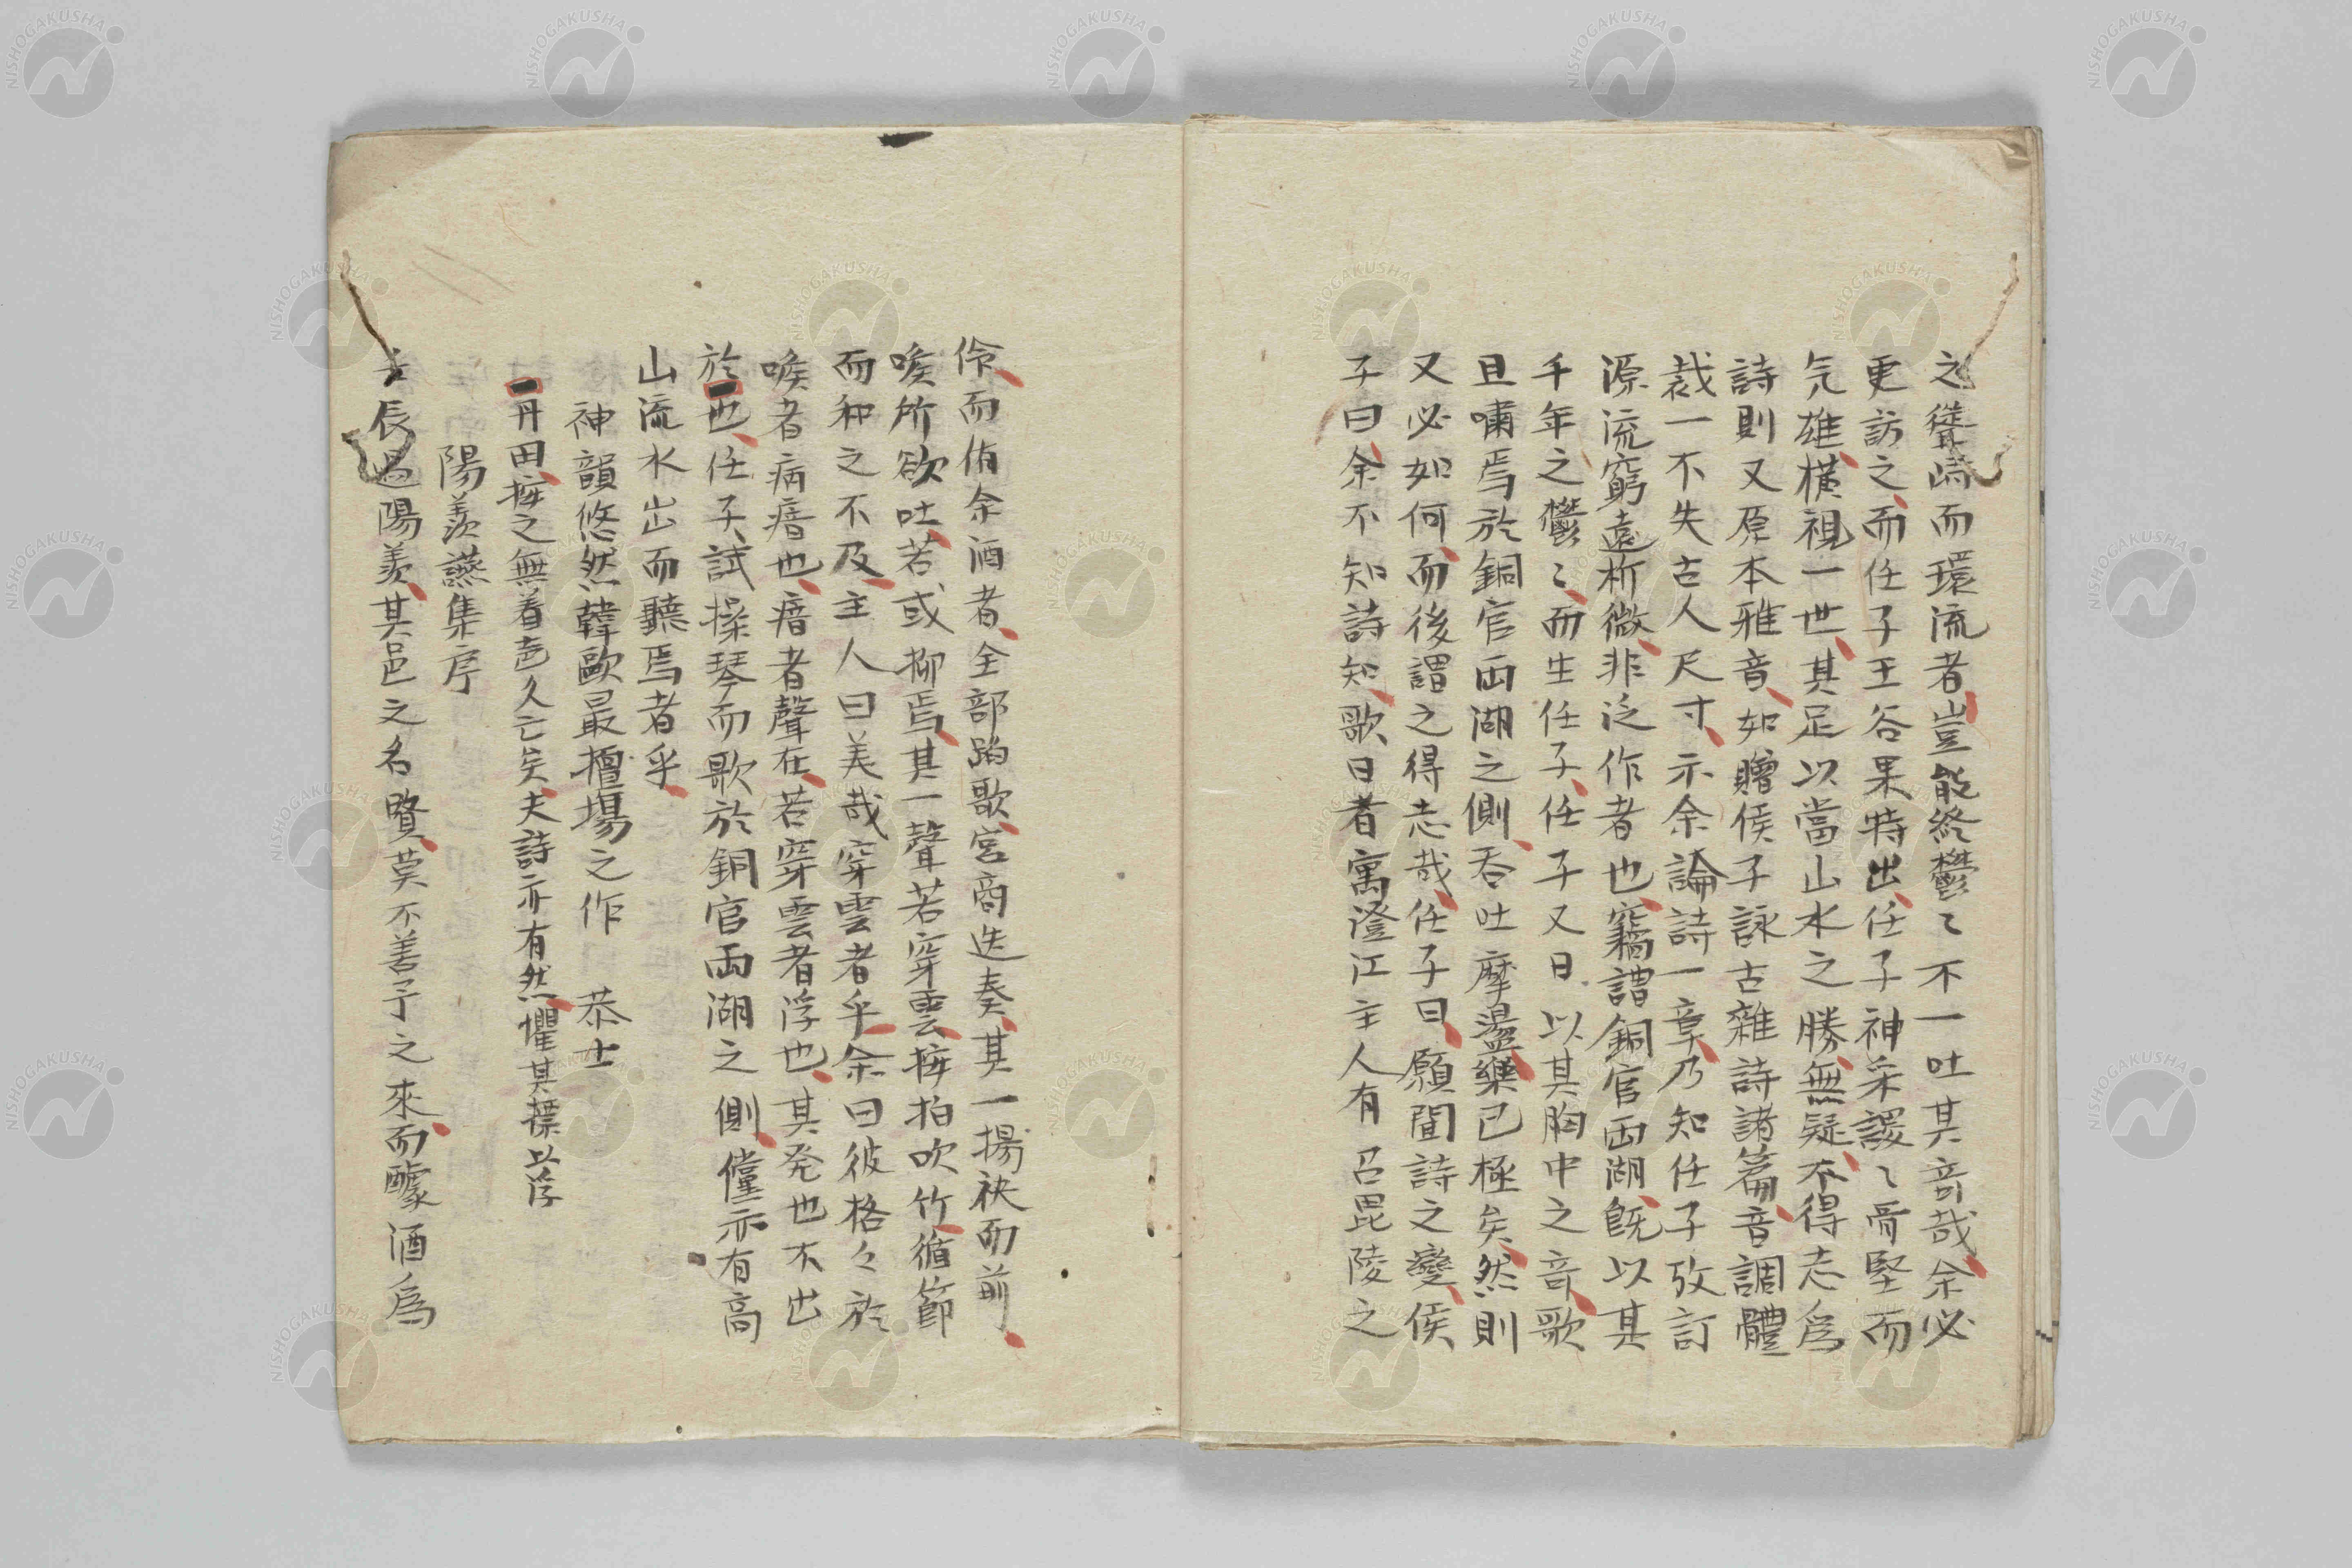 之聳峙而環流者豈能終鬱〻不一吐其奇哉余必
更訪之而任子王谷果特出任子神采謖〻骨堅而
氣雄橫視一世其足以當山水之勝無疑不得志爲
詩則又原本雅音如贈侯子詠古雜詩諸篇音調體
裁一不失古人尺寸示余論詩一章乃知任子攷訂
源流窮遠析微非泛作者也竊謂銅官兩湖旣以其
千年之鬱〻而生任子任子又日以其胸中之音歌
且嘯焉於銅官兩湖之側吞吐摩盪樂已極矣然則
又必如何而後謂之得志哉任子曰願聞詩之變侯
子曰余不知詩知歌日者寓澄江主人有召毘陵之
伶而侑余酒者全部蹈歌宮商迭奏其一揚袂而前
喉所欲吐若或抑焉其一聲若穿雲按拍吹竹循節
而和之不及主人曰美哉穿雲者乎余曰彼格々於
喉者病瘖也瘖者聲在若穿雲者浮也其発也不出
於也任子試操琴而歌於銅官兩湖之側儻亦有高
山流水出而聽焉者乎
神韻悠然韓歐最擅場之作 恭士
丹田按之無着老久亡矣夫詩亦有然懼其摽以浮
陽羨讌集序
辰過陽羨其邑之名賢莫不善予之來而醵酒爲